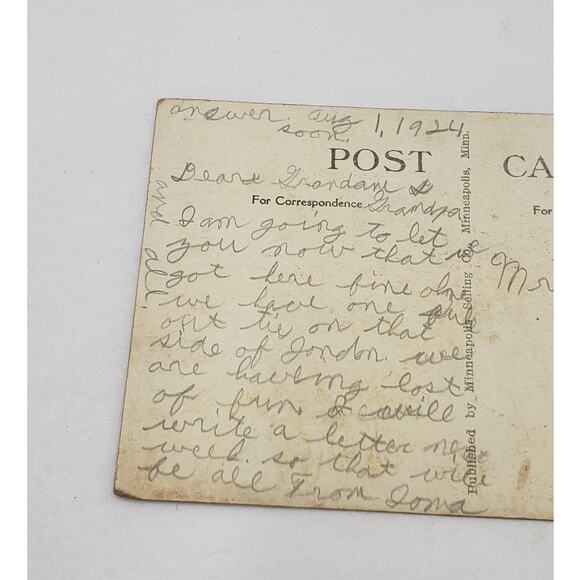 answer. aug 1, 1924
soon.
POST CA
Deare Grandam & Grandpa
and all.
For Correspondence
For
I am going to let
you now that we
got here fine
we have one
out tie on that
side of London. we
are having lost
of fun. I will
write a letter next
week. so that will
be all From Ioma
Mr
Published by Minneapolis Selling Co., Minneapolis, Minn.